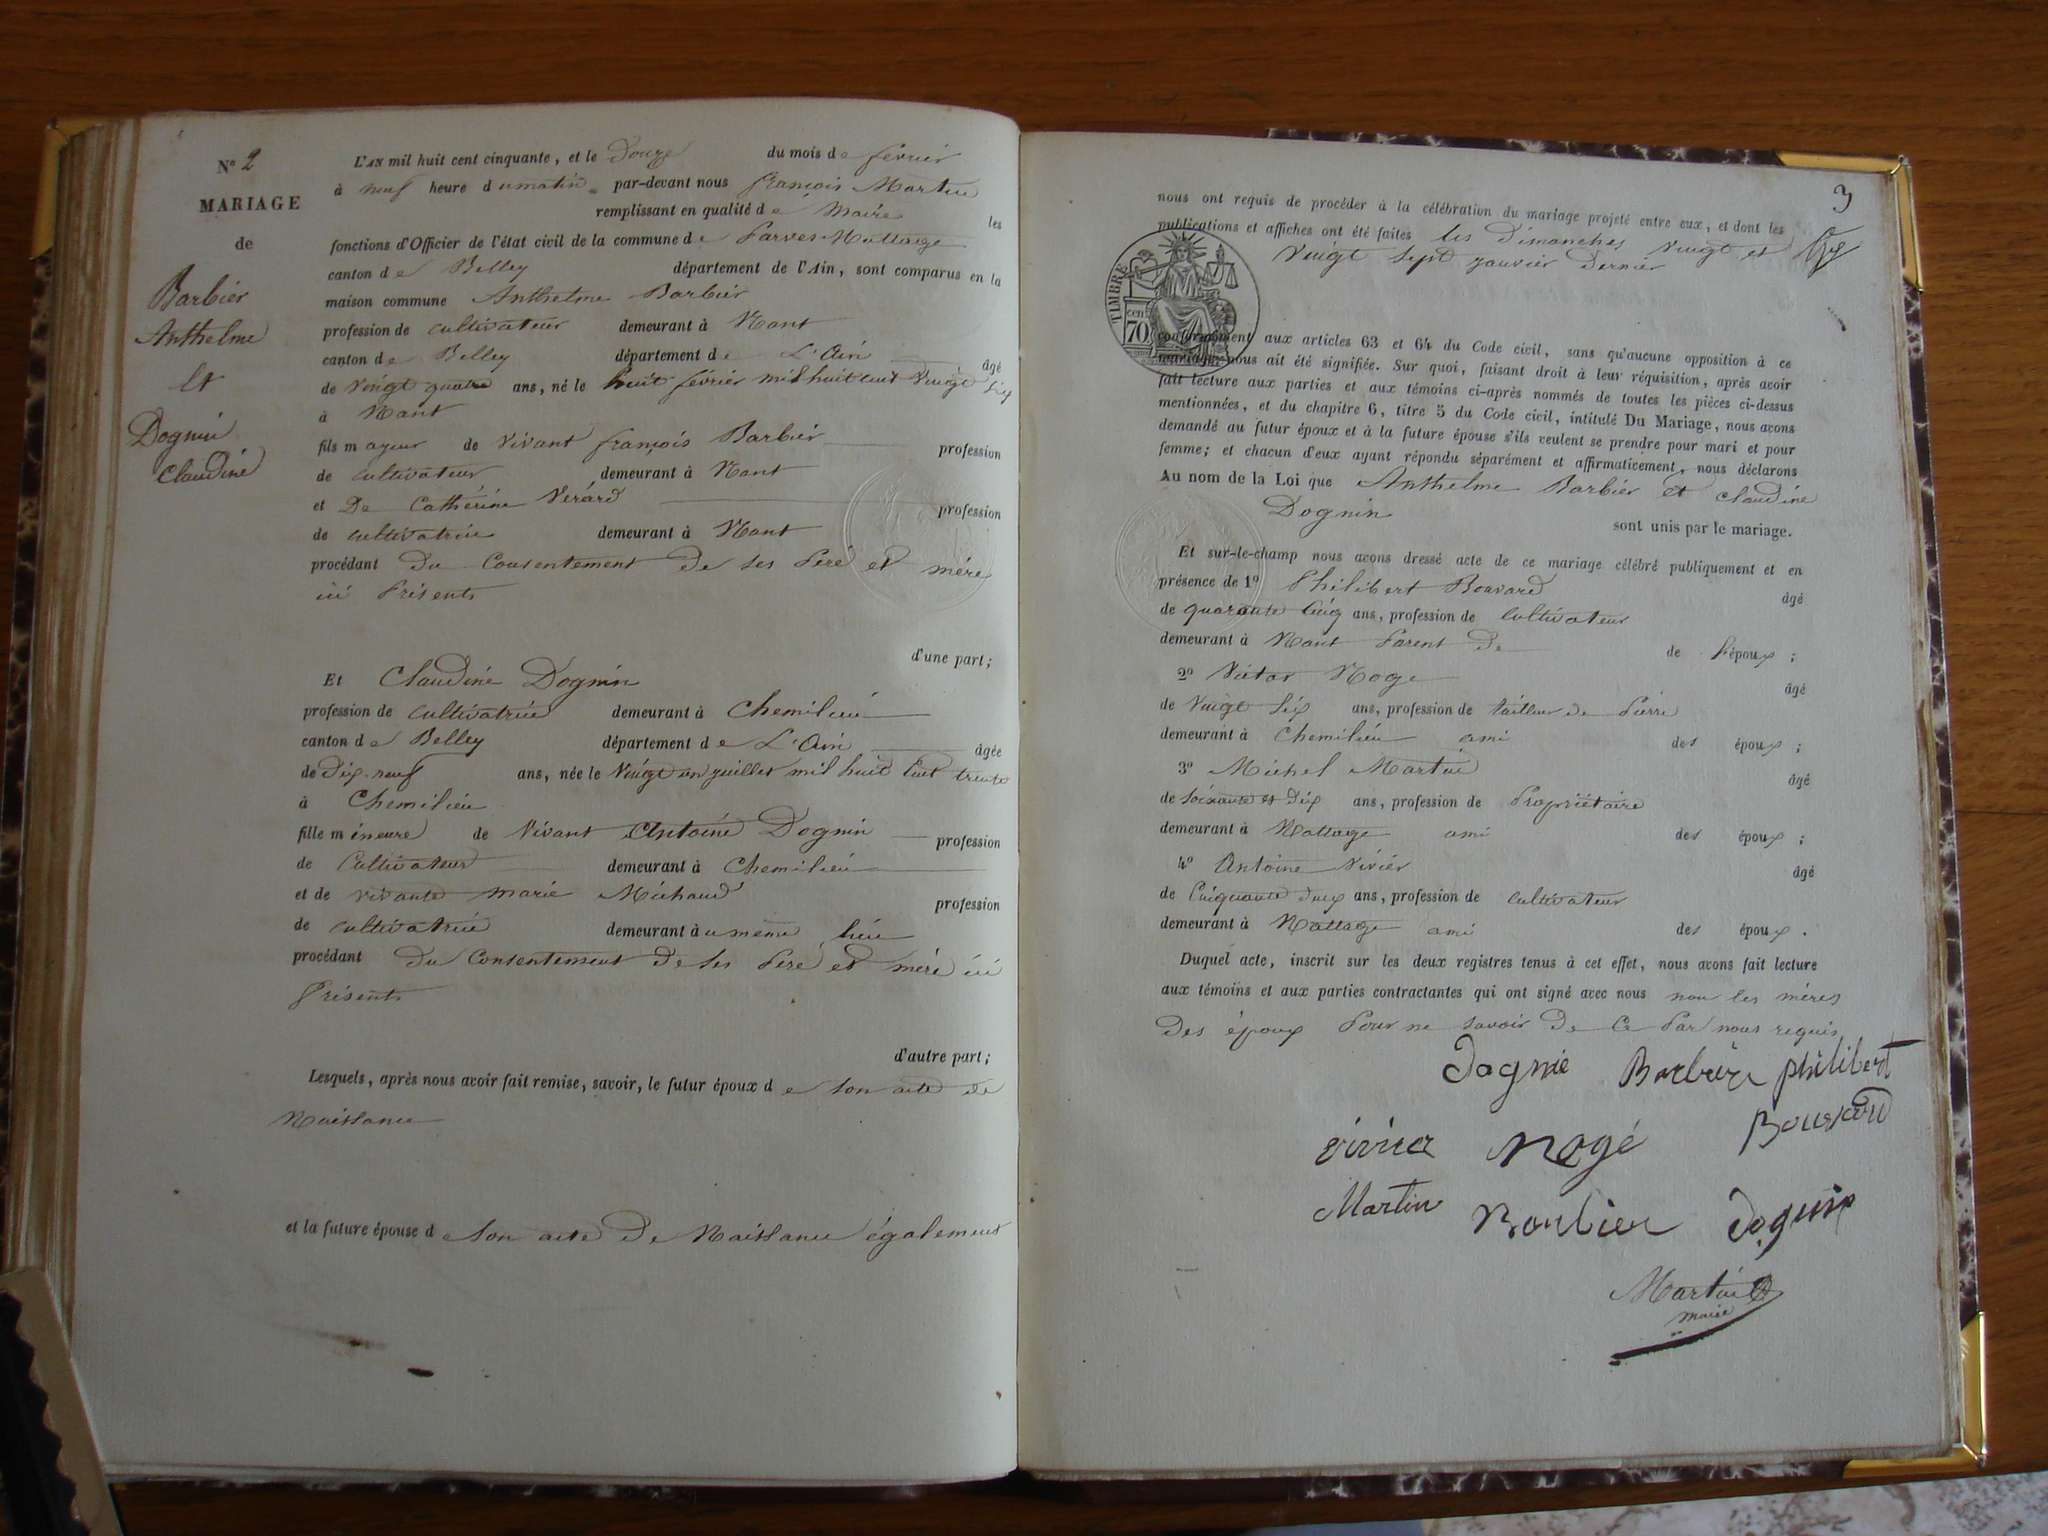 N° 2
MARIAGE
de
Barbier
Anthelme
Et
Dognin
Claudine
L'AN mil huit cent cinquante, et le Douze du mois de février
à neuf heure du matin par-devant nous françois Martin
remplissant en qualité de Maire les
fonctions d'Officier de l'état civil de la commune de Parves-Nattage
canton de Belley département de l'Ain, sont comparus en la
maison commune Anthelme Barbier
profession de cultivateur demeurant à Nant
canton de Belley département de L'Ain âgé
de vingt quatre ans, né le huit février mil huit cent vingt six
à Nant
fils mayeur de vivant françois Barbier profession
de cultivateur demeurant à Nant
et De Cathérine Vérard profession
de cultivatrice demeurant à Nant
procédant Du Consentement De ses Père et mère
ici Présents
d'une part;
Et Claudine Dognin
profession de cultivatrice demeurant à Chemilieu
canton de Belley département de L'Ain âgée
de Dix-neuf ans, née le vingt un juillet mil huit cent trente
à Chemilieu
fille mineure de vivant Antoine Dognin profession
de Cultivateur demeurant à Chemilieu
et de vivante marie Michaud profession
de cultivatrice demeurant à u meme lieu
procédant Du Consentement De ses Père et mère ici
Présents
d'autre part;
Lesquels, après nous avoir fait remise, savoir, le futur époux de son acte de
Naissance
et la future épouse de son acte De Naissance également
3
nous ont requis de procéder à la célébration du mariage projeté entre eux, et dont les
publications et affiches ont été faites les Dimanches vingt et
vingt sept janvier dernier
TIMBRE
70 cen
conformément aux articles 63 et 64 du Code civil, sans qu'aucune opposition à ce
mariage nous ait été signifiée. Sur quoi, faisant droit à leur réquisition, après avoir
fait lecture aux parties et aux témoins ci-après nommés de toutes les pièces ci-dessus
mentionnées, et du chapitre 6, titre 5 du Code civil, intitulé Du Mariage, nous avons
demandé au futur époux et à la future épouse s'ils veulent se prendre pour mari et pour
femme; et chacun d'eux ayant répondu séparément et affirmativement, nous déclarons
Au nom de la Loi que Anthelme Barbier et Claudine
Dognin sont unis par le mariage.
Et sur-le-champ nous avons dressé acte de ce mariage célébré publiquement et en
présence de 1° Philibert Bouvard âgé
de quarante cinq ans, profession de Cultivateur
demeurant à Nant Parent De de l'époux;
2° Victor Noge âgé
de vingt six ans, profession de tailleur de Pierre
demeurant à Chemilieu ami des époux;
3° Michel Martin âgé
de soixante et Dix ans, profession de Propriétaire
demeurant à Nattage ami des époux;
4° Antoine Vivier âgé
de Cinquante Deux ans, profession de cultivateur
demeurant à Nattage ami des époux.
Duquel acte, inscrit sur les deux registres tenus à cet effet, nous avons fait lecture
aux témoins et aux parties contractantes qui ont signé avec nous non les mères
Des époux Pour ne savoir De Ce Par nous requis
Dognie Barbière philibert
Bouvard
vivier Nogé
Martin Barbier Dognin
Martin
maire